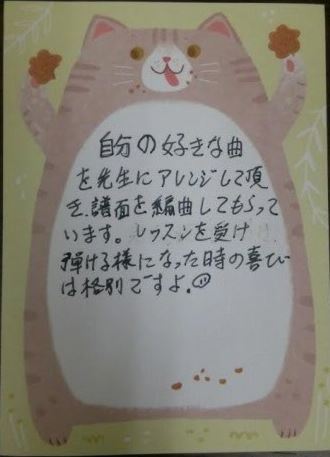 自分の好きな曲
を先生にアレンジして頂
き、譜面を編曲してもらって
います。レッスンを受け
弾ける様になった時の喜び
は格別ですよ。